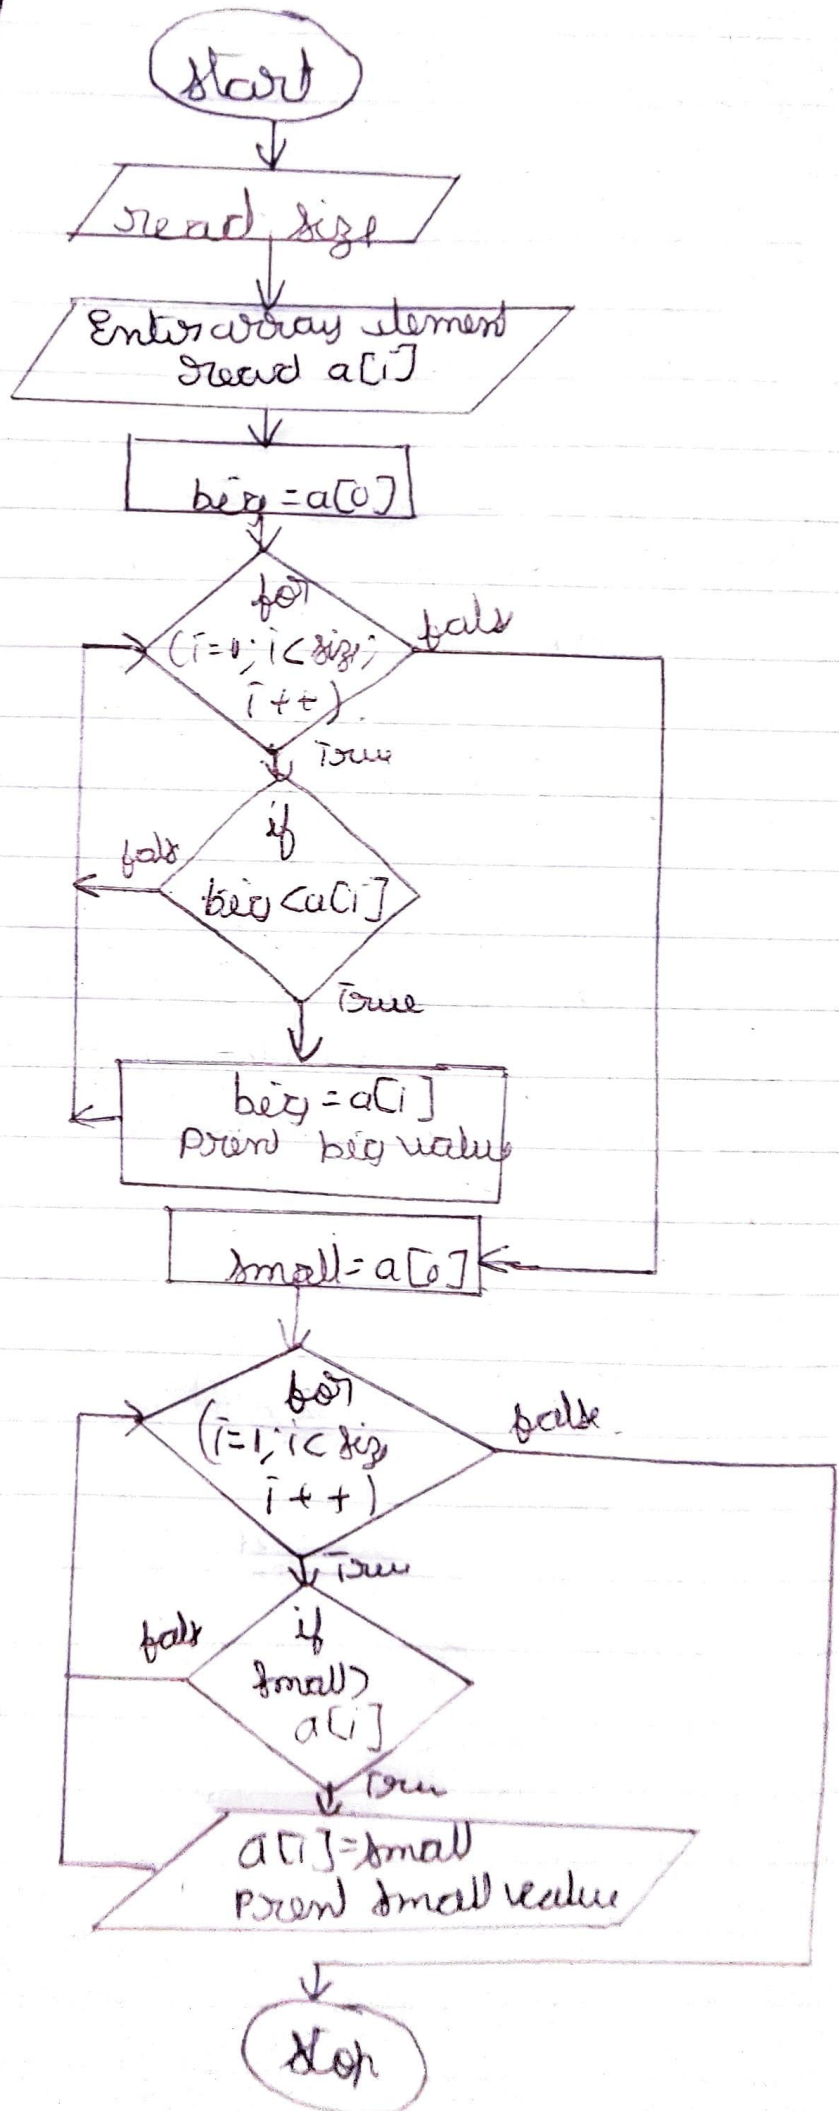 start
read size
Enter array element
read a[i]
big = a[0]
for
(i=1; i<size;
i++)
fals
True
if
big <a[i]
fals
True
big = a[i]
Prent big value
small = a[0]
for
(i=1; i< size
i++)
false
True
if
small>
a[i]
fals
Tru
a[i]=small
Prent small value
stop